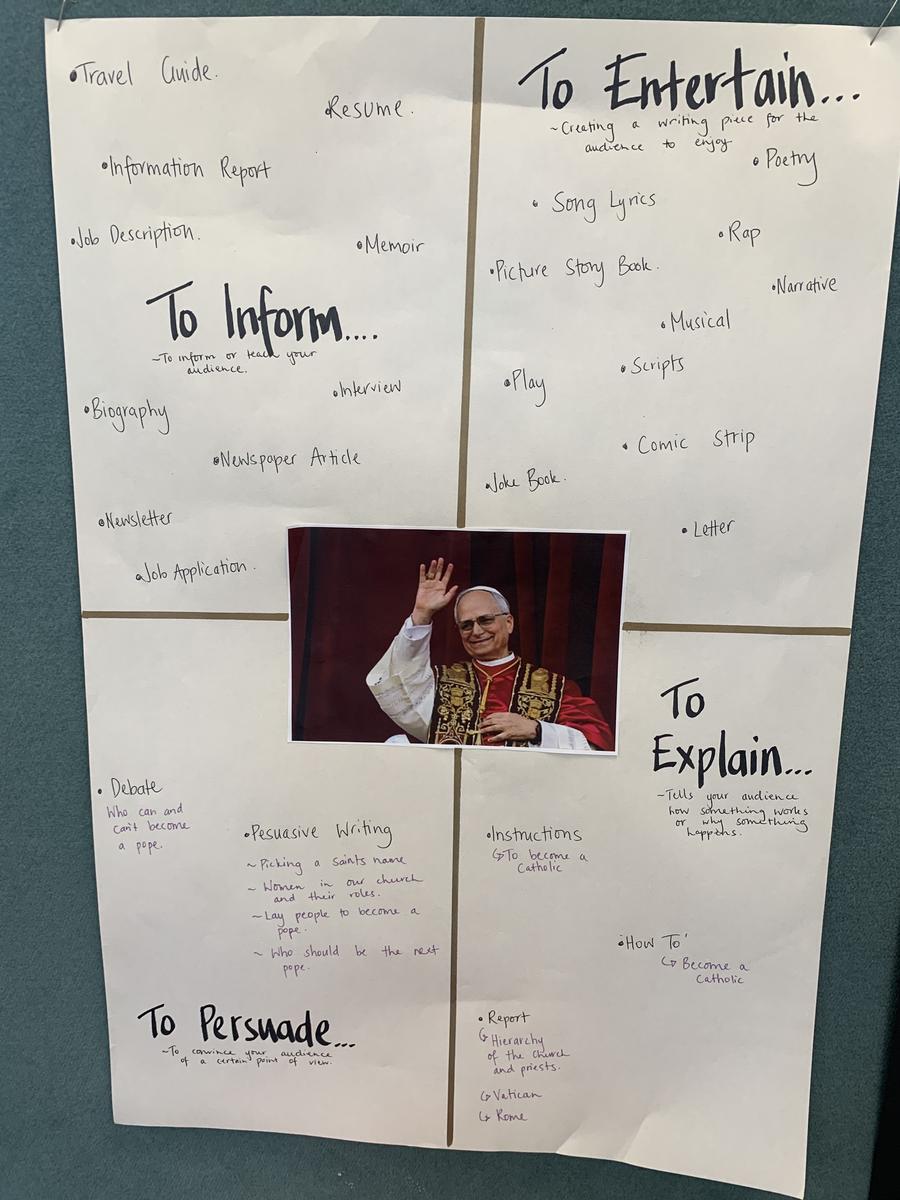 •Travel Guide.
•Resume.
•Information Report
•Job Description.
•Memoir
To Inform....
~To inform or teach your
audience.
•Interview
•Biography
•Newspaper Article
•Newsletter
•Job Application.
To Entertain...
~Creating a writing piece for the
audience to enjoy
•Poetry
•Song Lyrics
•Rap
•Picture Story Book.
•Narrative
•Musical
•Scripts
•Play
•Comic Strip
•Joke Book.
•Letter
•Debate
Who can and
can't become
a pope.
•Pesuasive Writing
~Picking a saints name
~Women in our church
and their roles.
~Lay people to become a
pope.
~Who should be the next
pope.
To Persuade...
~To convince your audience
of a certain point of view.
To
Explain...
~Tells your audience
how something works
or why something
happens.
•Instructions
↳To become a
Catholic
•'How To'
↳Become a
Catholic
•Report
↳Hierarchy
of the Church
and priests.
↳Vatican
↳Rome